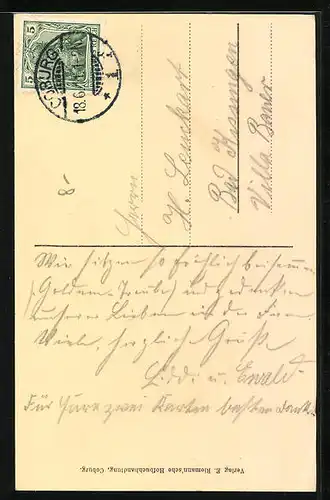 5 5
COBURG
18.6.
8-
Herrn
H. Leuchart
Bad Kissingen
Villa Bauer
Wir sitzen so fröhlich beisammen
(Goldene Traube) und gedenken
unserer Lieben in der Ferne.
Viele, herzliche Grüße
Liddi u. Ewald.
Für Eure zwei Karten besten Dank.
Verlag E. Riemann'sche Hofbuchhandlung, Coburg.